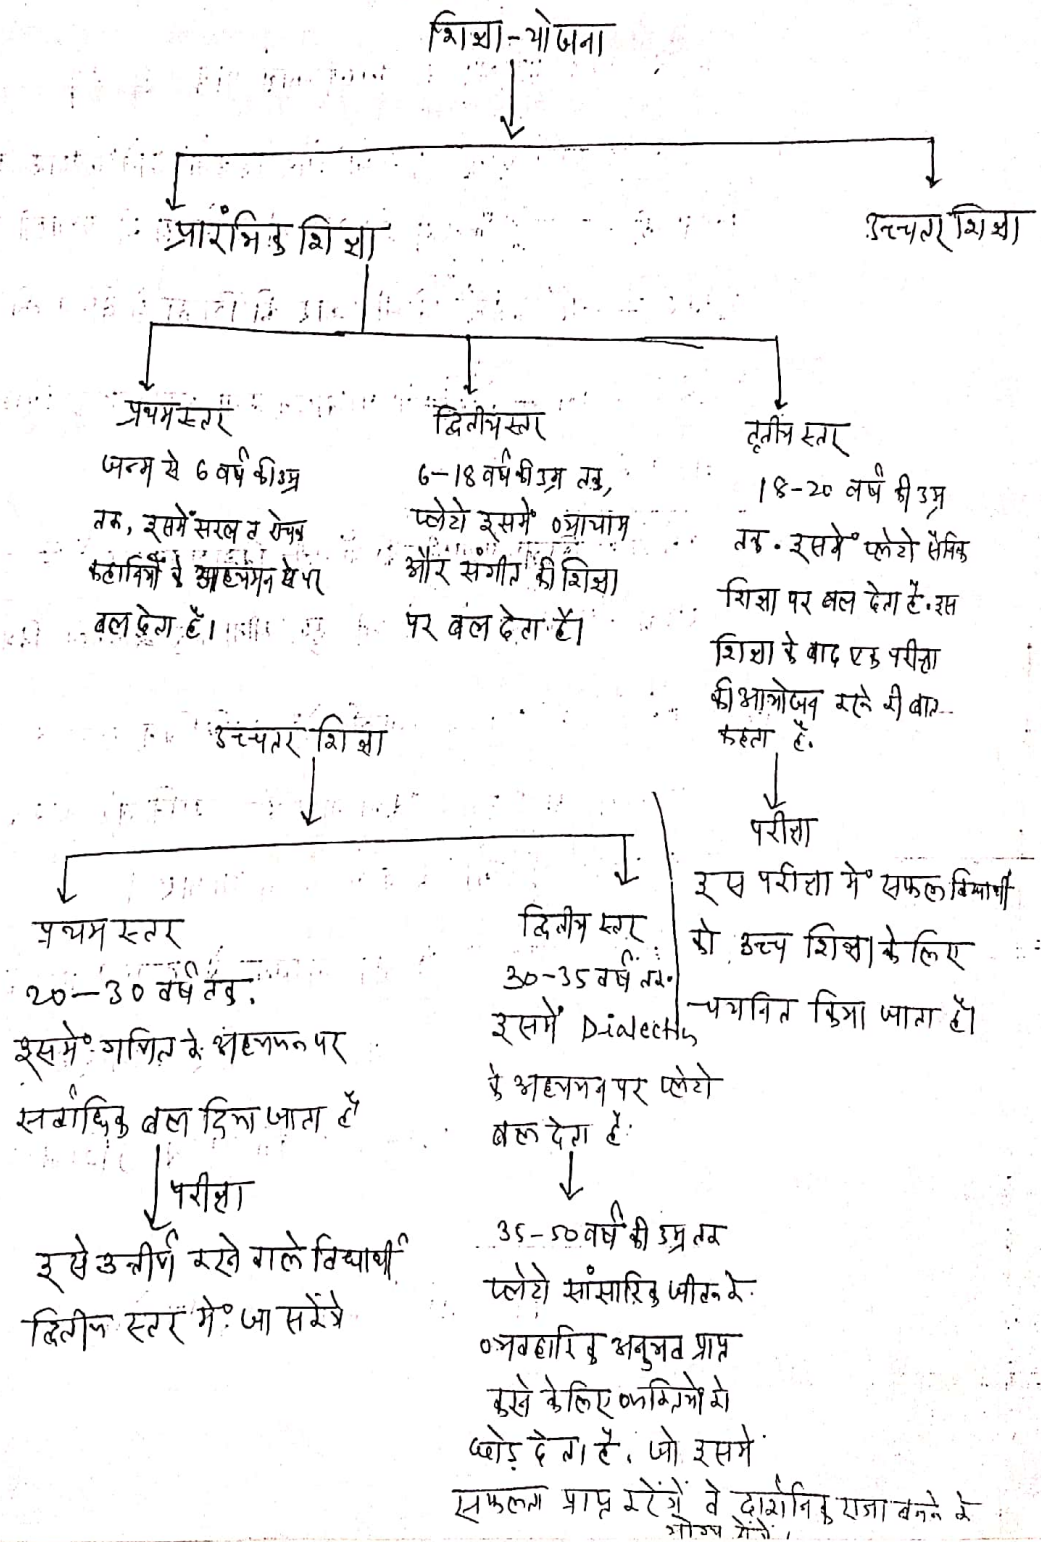 शिक्षा-योजना
प्रारंभिक शिक्षा
उच्चतर शिक्षा
प्रथम स्तर
जन्म से 6 वर्ष की उम्र
तक, इसमें सरल व रोचक
कहानियों के अध्ययन पर
बल देता है।
द्वितीय स्तर
6-18 वर्ष की उम्र तक,
प्लेटो इसमें व्यायाम
और संगीत की शिक्षा
पर बल देता है।
तृतीय स्तर
18-20 वर्ष की उम्र
तक. इसमें प्लेटो सैनिक
शिक्षा पर बल देता है. इस
शिक्षा के बाद एक परीक्षा
की आयोजन करने की बात
कहता है.
परीक्षा
इस परीक्षा में सफल विद्यार्थी
को उच्च शिक्षा के लिए
चयनित किया जाता है।
उच्चतर शिक्षा
प्रथम स्तर
20-30 वर्ष तक.
इसमें गणित के अध्ययन पर
सर्वाधिक बल दिया जाता है
परीक्षा
इसे उत्तीर्ण करने वाले विद्यार्थी
द्वितीय स्तर में जा सकेंगे
द्वितीय स्तर
30-35 वर्ष तक.
इसमें Dialectic
के अध्ययन पर प्लेटो
बल देता है.
35-50 वर्ष की उम्र तक
प्लेटो सांसारिक जीवन के
व्यवहारिक अनुभव प्राप्त
करने के लिए व्यक्तियों को
छोड़ देता है. जो इसमें
सफलता प्राप्त करेंगें वे दार्शनिक राजा बनने के
योग्य होंगें।